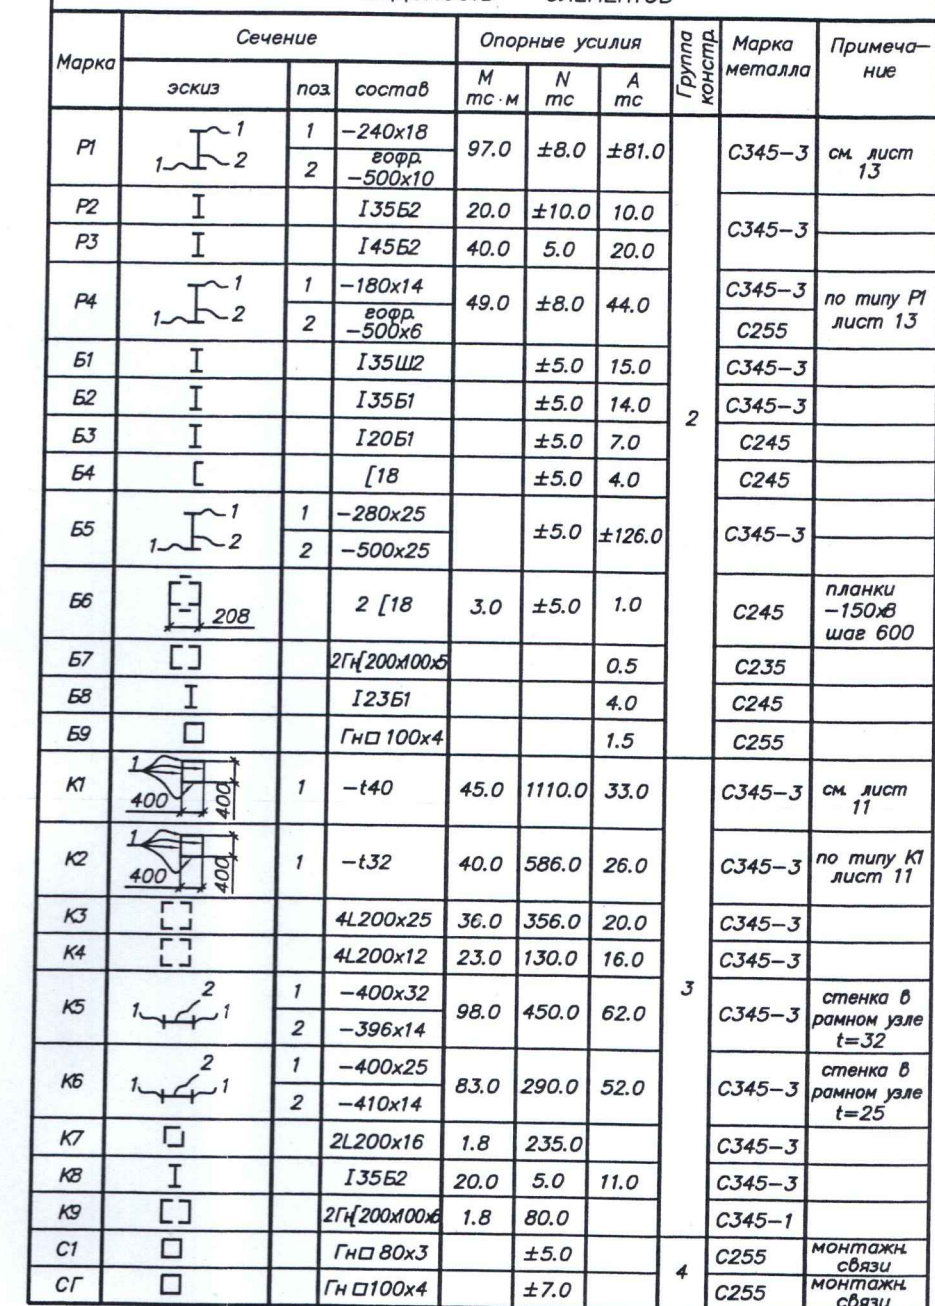 ЭЛЕМЕНТОВ
Марка
Сечение
Опорные усилия
Группа констр.
Марка металла
Примеча-
ние
эскиз
поз.
состав
M тс·м
N тс
A тс
Р1 1 1 2 1 -240x18 97.0 ±8.0 ±81.0 С345-3 см. лист 13
2 гофр. -500x10
Р2 I35Б2 20.0 ±10.0 10.0 С345-3
Р3 I45Б2 40.0 5.0 20.0
Р4 1 1 2 1 -180x14 49.0 ±8.0 44.0 С345-3 по типу Р1 лист 13
2 гофр. -500x6 С255
Б1 I35Ш2 ±5.0 15.0 С345-3
Б2 I35Б1 ±5.0 14.0 2 С345-3
Б3 I20Б1 ±5.0 7.0 С245
Б4 [18 ±5.0 4.0 С245
Б5 1 1 2 1 -280x25 ±5.0 ±126.0 С345-3
2 -500x25
Б6 208 2 [18 3.0 ±5.0 1.0 С245 планки -150x8 шаг 600
Б7 2Гн[200x100x5 0.5 С235
Б8 I23Б1 4.0 С245
Б9 Гн□ 100x4 1.5 С255
К1 1 400 400 1 -t40 45.0 1110.0 33.0 С345-3 см. лист 11
К2 1 400 400 1 -t32 40.0 586.0 26.0 С345-3 по типу К1 лист 11
К3 4L200x25 36.0 356.0 20.0 С345-3
К4 4L200x12 23.0 130.0 16.0 С345-3
К5 1 2 1 1 -400x32 98.0 450.0 62.0 3 С345-3 стенка в рамном узле t=32
2 -396x14
К6 1 2 1 1 -400x25 83.0 290.0 52.0 С345-3 стенка в рамном узле t=25
2 -410x14
К7 2L200x16 1.8 235.0 С345-3
К8 I35Б2 20.0 5.0 11.0 С345-3
К9 2Гн[200x100x6 1.8 80.0 С345-1
С1 Гн□ 80x3 ±5.0 4 С255 монтажн. связи
СГ Гн □100x4 ±7.0 С255 монтажн. связи